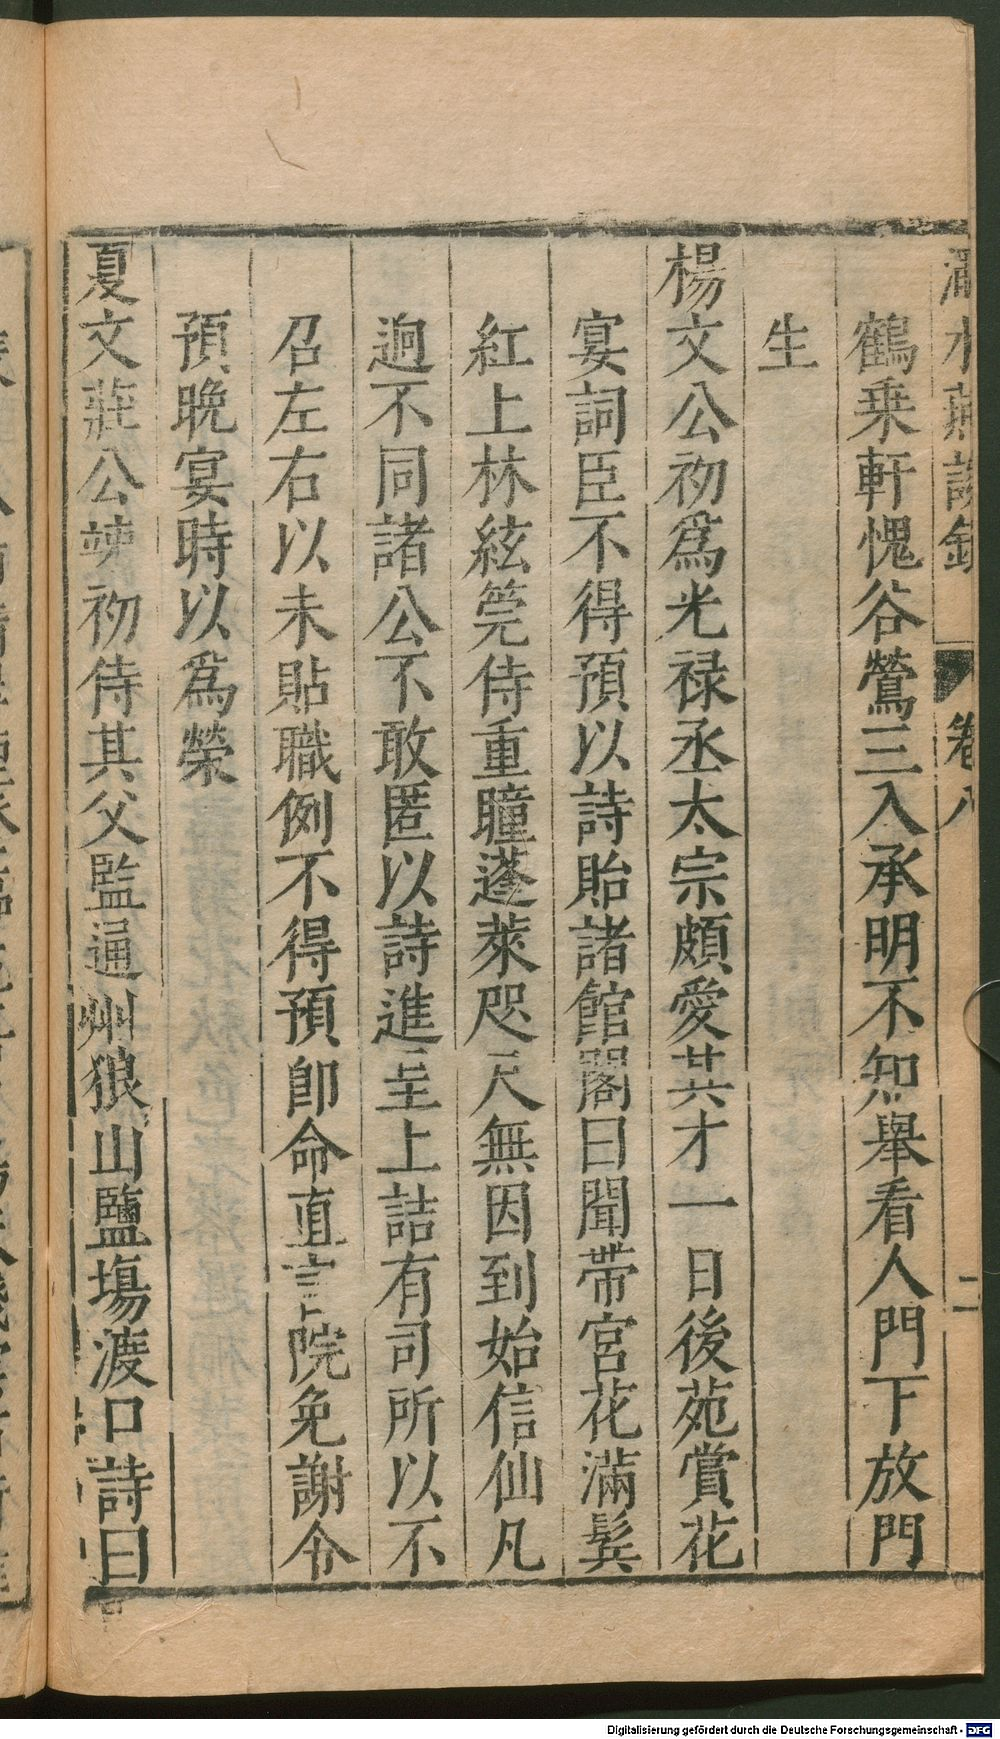 水燕談錄 卷八 二
鶴乗軒愧谷鶯三入承明不知舉看人門下放門
生
楊文公初爲光禄丞太宗頗愛其才一日後苑賞花
宴詞臣不得預以詩貽諸館閣曰聞帶宮花滿鬂
紅上林絃筦侍重瞳蓬萊咫尺無因到始信仙凡
逈不同諸公不敢匿以詩進呈上詰有司所以不
召左右以未貼職例不得預卽命直院免謝令
預晚宴時以爲榮
夏文莊公竦初侍其父監通州狼山鹽塲渡口詩曰
Digitalisierung gefördert durch die Deutsche Forschungsgemeinschaft - DFG